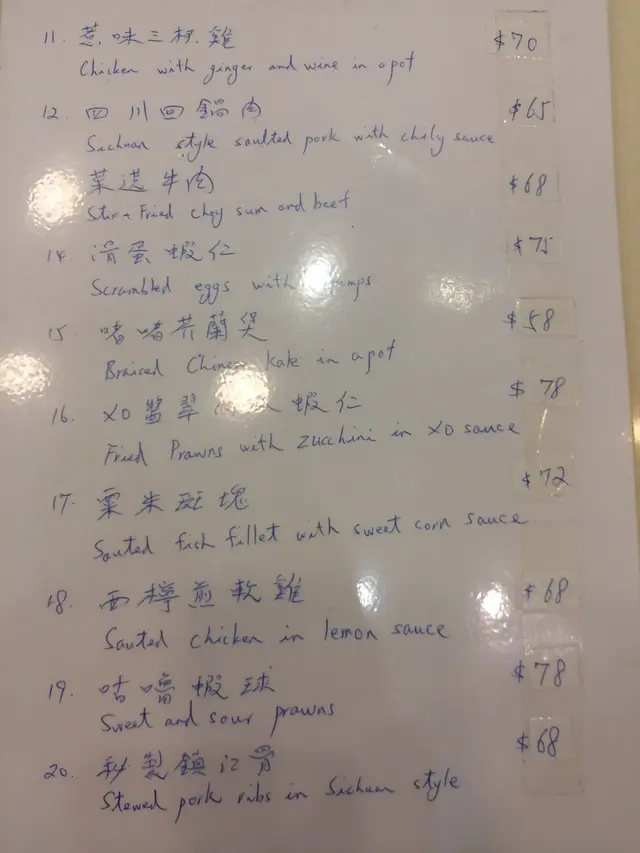 11. 惹味三杯雞 $70
Chicken with ginger and wine in a pot
12. 四川回鍋肉 $65
Sichuan style saulted pork with chily sauce
菜遠牛肉 $68
Stir-Fried choy sum and beef
14. 滑蛋蝦仁 $75
Scrambled eggs with
15. 啫啫芥蘭煲 $58
Braised Kale in a pot
16. XO醬翠 蝦仁 $78
Fried Prawns with zucchini in XO sauce
17. 粟米斑塊 $72
Sauted fish fillet with sweet corn sauce
18. 西檸煎軟雞 $68
Sauted chicken in lemon sauce
19. 咕嚕蝦球 $78
Sweet and sour prawns
20. 秘製鎮江骨 $68
Stewed pork ribs in Sichuan style